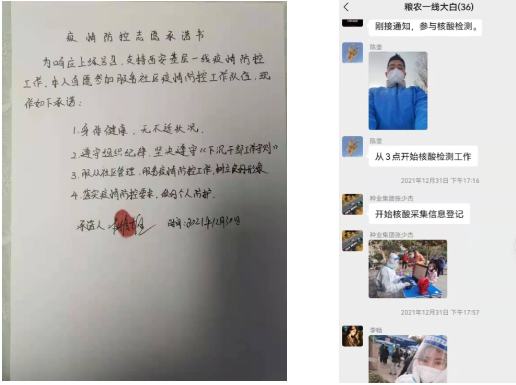 疫情防控志愿承诺书
为响应上级号召,支持西安基层一线疫情防控
工作,本人自愿参加服务社区疫情防控工作队伍,现
作如下承诺:
1.身体健康,无不适状况。
2.遵守组织纪律,坚决遵守《下沉干部工作守则》
3.服从社区管理,服务疫情防控工作,树立良好形象
4.落实疫情防控要求,做好个人防护。
承诺人
时间:2021年12月30日
粮农一线大白(36)
刚接通知,参与核酸检测。
陈奎
陈奎
从3点开始核酸检测工作
2021年12月31日 下午17:16
种业集团张少杰
开始核酸采集信息登记
种业集团张少杰
2021年12月31日 下午17:57
李畅